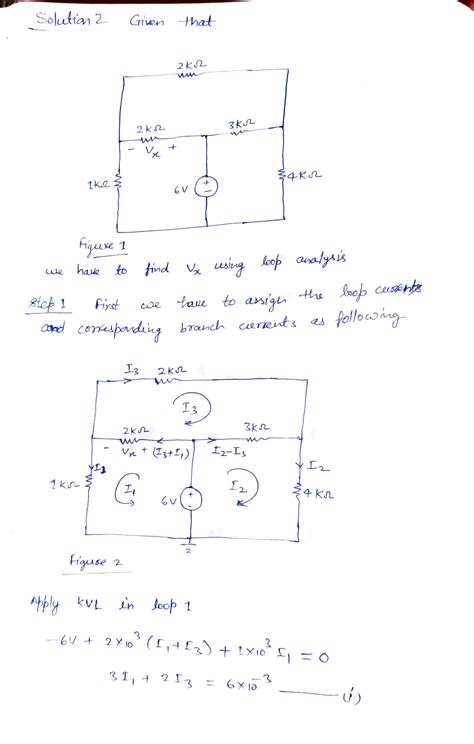 Solution 2 Given that
2kΩ
2kΩ
3kΩ
- Vx +
1kΩ
6V
+
-
4kΩ
Figure 1
we have to find Vx using loop analysis
Step 1 First we have to assign the loop currents
and corresponding branch currents as following
I3 2kΩ
I3
2kΩ
3kΩ
- Vx + (I3+I1)
I2-I3
I2
1kΩ
I1
6V
+
-
I2
4kΩ
Figure 2
Apply KVL in loop 1
-6V + 2×10³ (I1+I3) + 1×10³ I1 = 0
3I1 + 2I3 = 6×10⁻³ (i)